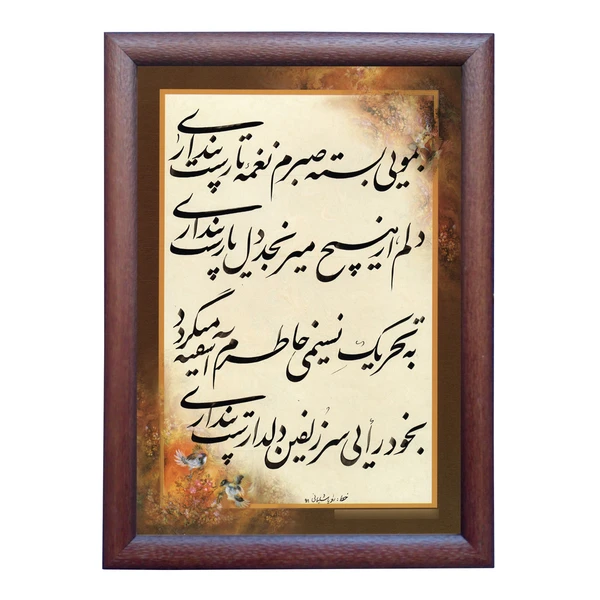 بمویی بسته صبرم نغمهٔ تارست پنداری
دلم از هیچ میرنجد دل یارست پنداری
به تحریک نسیمی خاطرم آشفته میگردد
بخود رأیی سر زلفین دلدارست پنداری
خط :